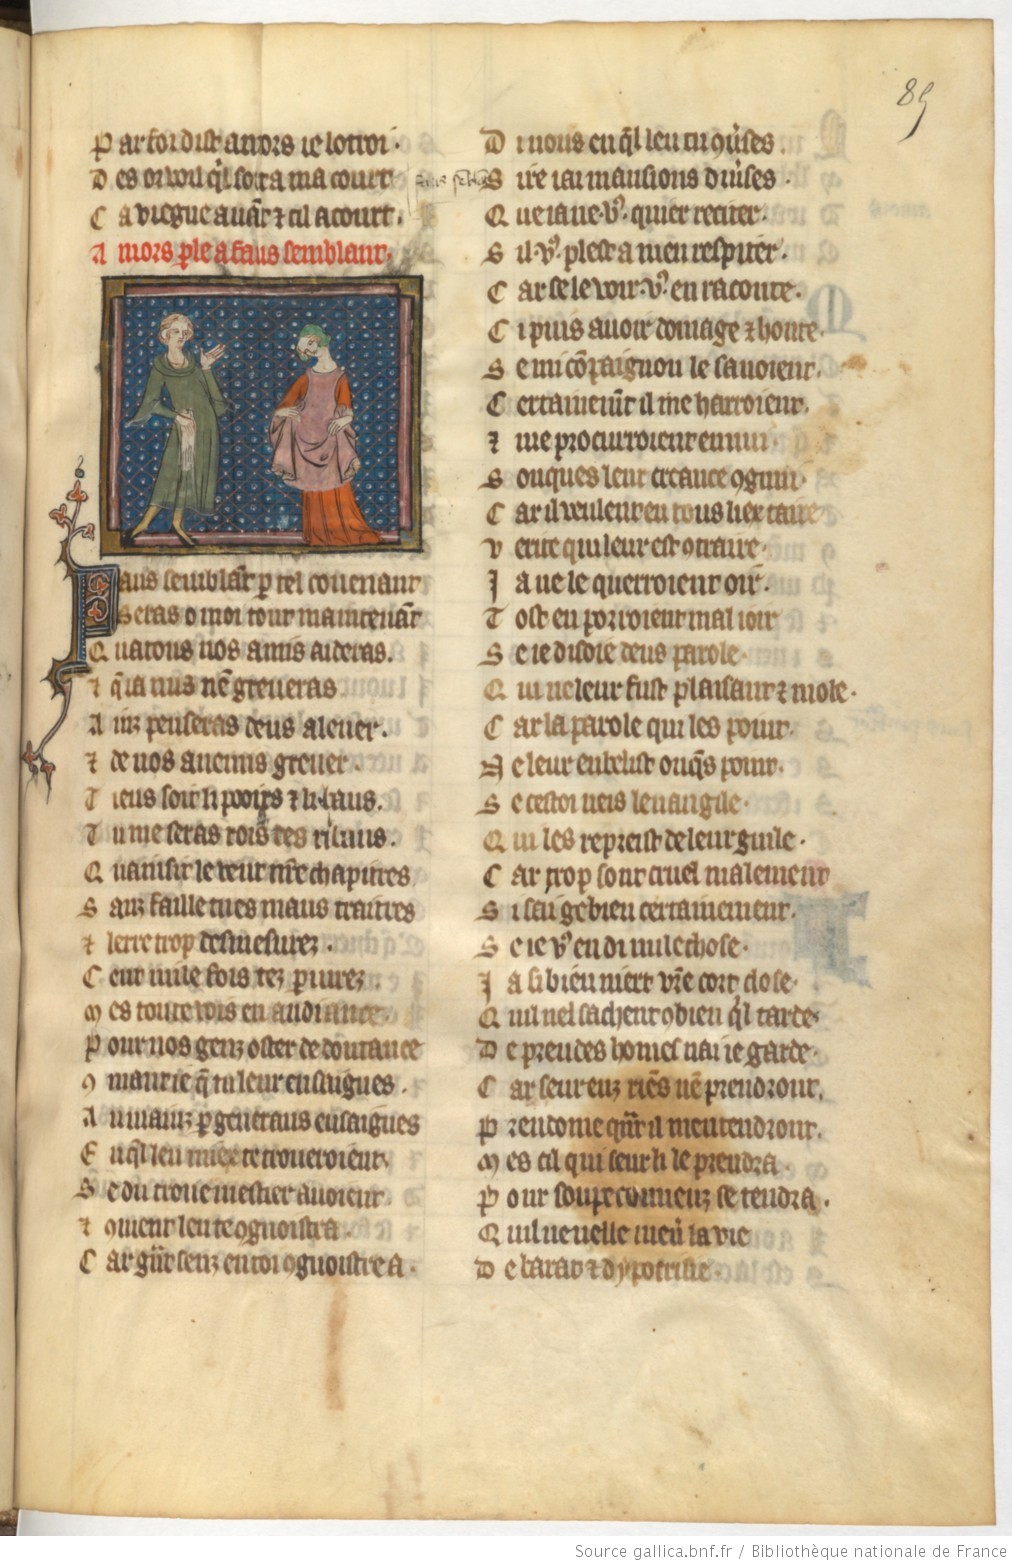 85
Par foi dist amors ie lotroi.
Des or voil q'l soit a ma court
Ca viegne auāt ⁊ cil acourt.
Amors ple a faus semblant.
Faus semblāt p tel couenant
Seras o moi tout maintenāt
Que tous nos amis aideras.
⁊ q̄ ia nus nē greueras
Ainz penseras deus aleuer.
⁊ de nos anemis greuer.
Tiens soit li pooirs ⁊ li baus.
Tu me seras rois des ribaus.
Quainsi le veut nr̄e chapitres
Sanz faille tu es maus traitres
⁊ lerre trop desmesurez.
Cent mile fois tez pariurez.
Mes toute vois en audiance.
Pour nos genz oster de doutance
9mant ie q̄ tu leur ensaignes.
Au mainz p generaus ensaignes
En q'l leu miex te troueroient.
Se du trouer mestier auoient.
⁊ 9ment len te 9gnoistra.
Car g̃nt senz en toi 9gnoistre a.
Di nous en q'l leu tu 9uerses.
Sire iai mansions diu'ses.
Que ia ne v9 quier reciter.
Sil v9 plest a men respiter.
Car se le voir v9 en raconte.
Ci puis auoir domage ⁊ honte.
Se mi cōpaignon le sauoient.
Certainemt il me harroient.
⁊ me procurroient ennui.
Sonques leur creance 9gnui.
Car il veulent en tous liex taire
Verite qui leur est 9traire.
Ja ne le querroient oir.
Tost en porroient mal ioir
Se ie disoie deus parole.
Qui ne leur fust plaisant ⁊ mole.
Car la parole qui les point.
Ne leur enbelist onq̄s point.
Se cestoit neis leuangile.
Qui les repreist de leur guile.
Car trop sont cruel malement
Si sai ge bien certainement.
Se ie v9 en di nule chose.
Ja si bien niert vr̄e cort close.
Quil nel sachent 9bien q'l tarde.
De preudes homes nai ie garde.
Car seur euz riēs nē prendront.
Preudome qñt il mentendront.
Mes cil qui seur li le prendra.
Pour soupeconneuz se rendra.
Quil ne uelle mener la vie
De barat ⁊ dypocrisie.
Source gallica.bnf.fr / Bibliothèque nationale de France